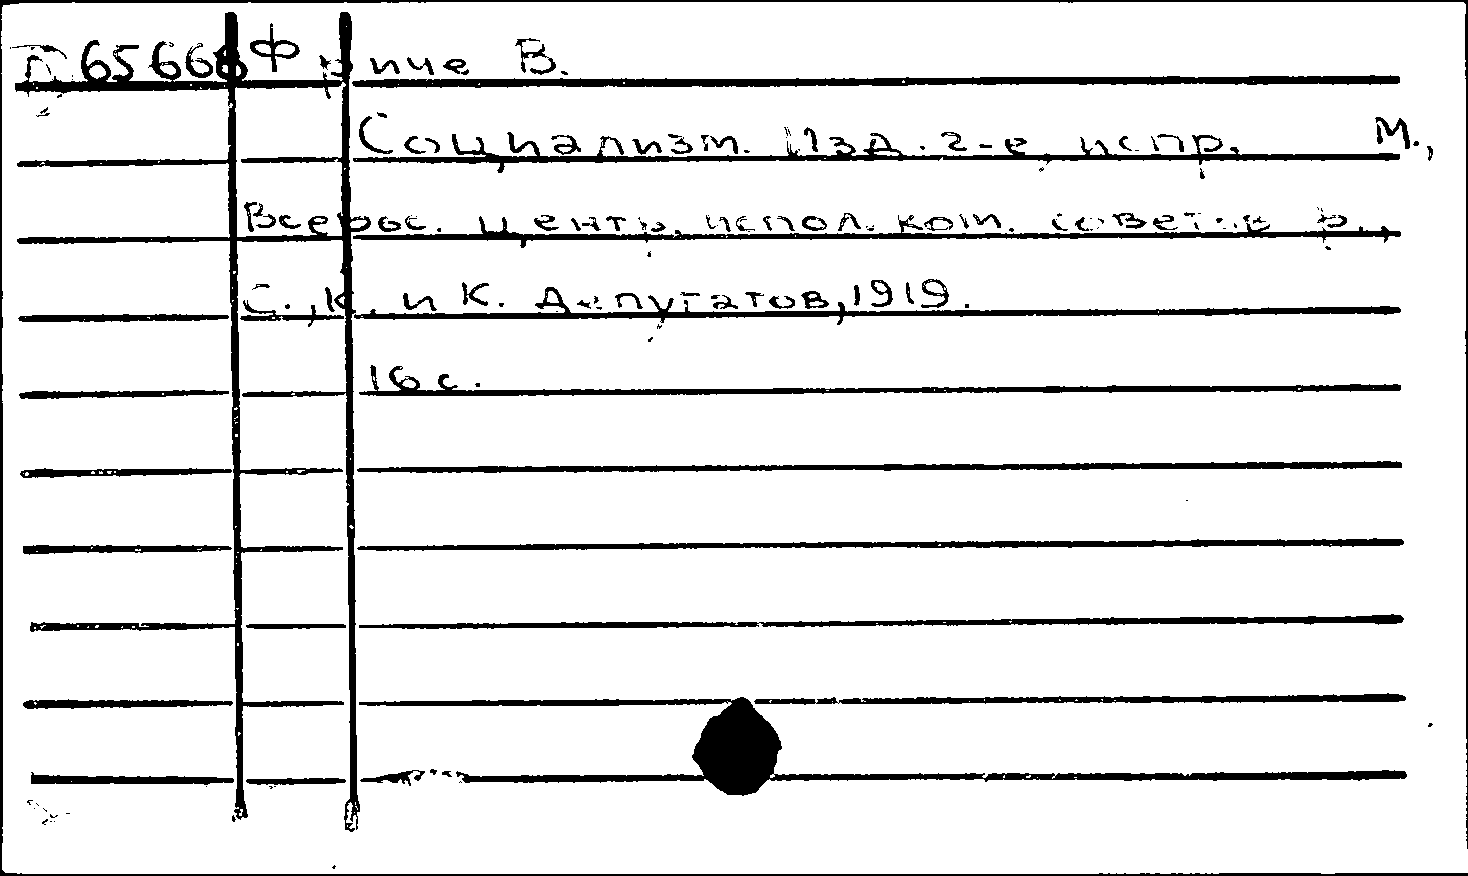 П 65668 Фриче В.
Социализм. Изд. 2-е, испр. М.,
Всерос. центр. испол. ком. советов р.,
С., К. и К. Депутатов, 1919.
16 с.